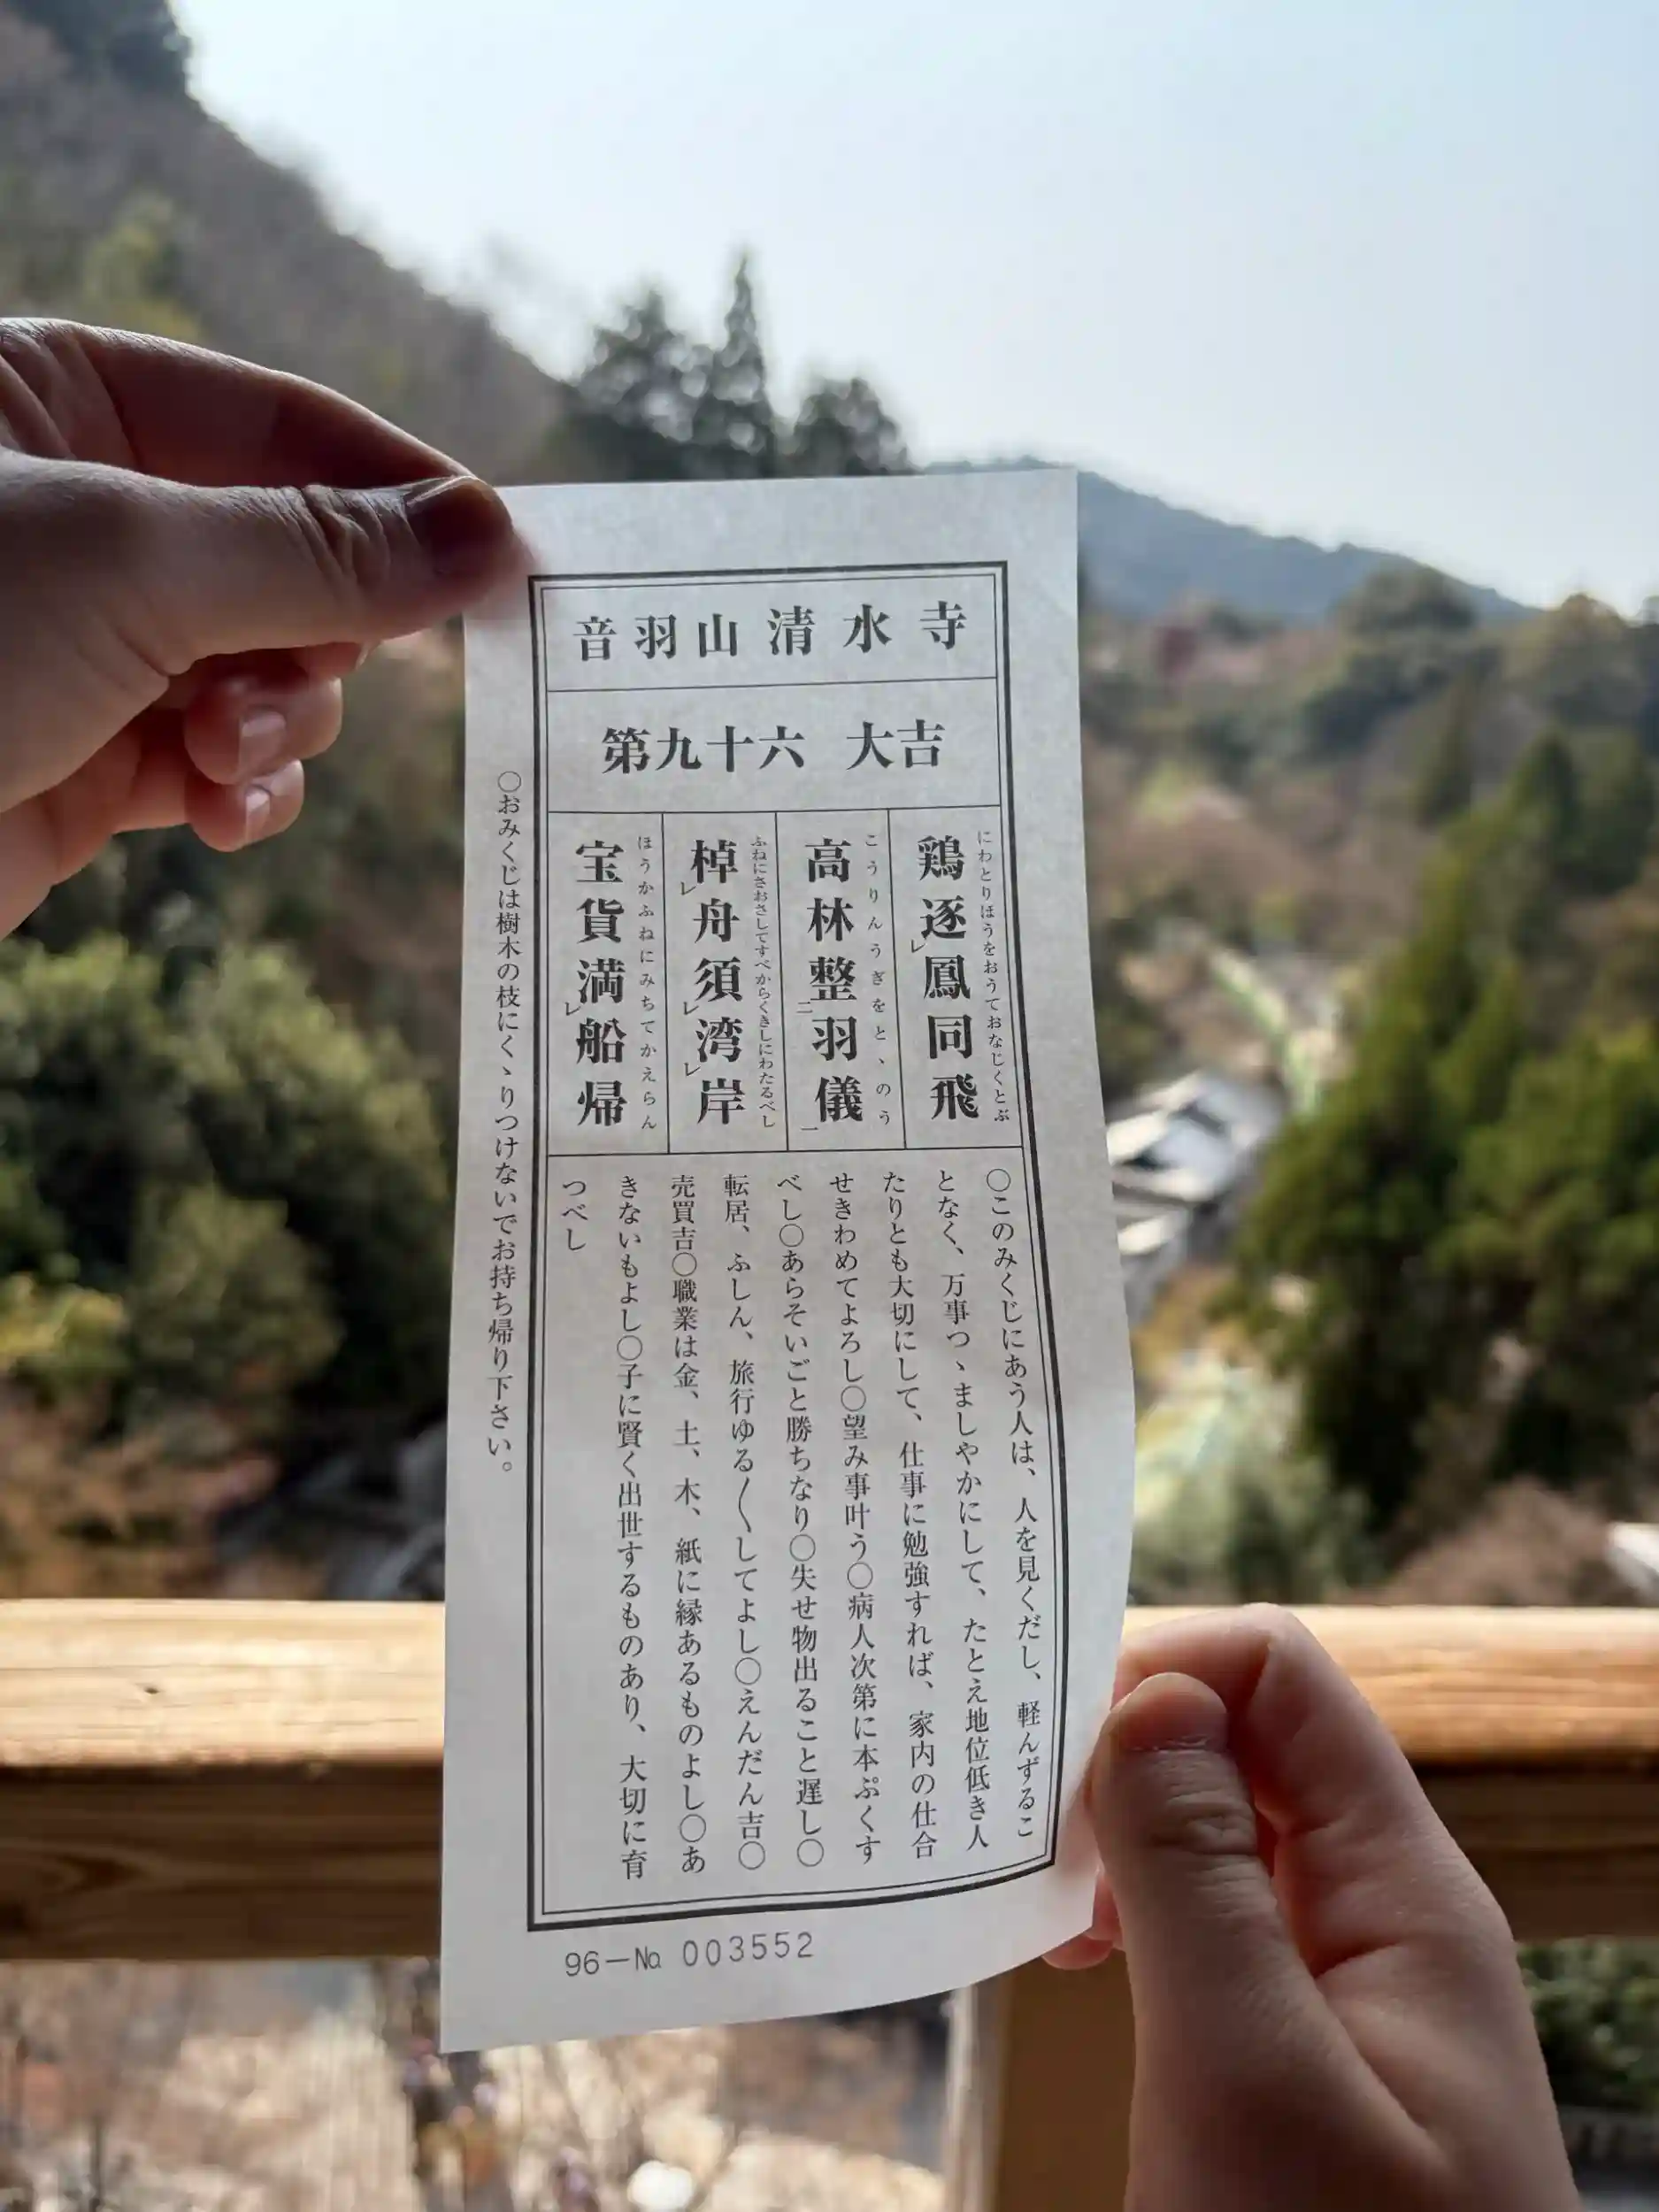 音羽山清水寺
第九十六 大吉
鶏逐鳳同飛
にわとりほうをおうておなじくとぶ
高林整羽儀
こうりんうぎをとゝのう
棹舟須湾岸
ふねにさおさしてすべからくきしにわたるべし
宝貨満船帰
ほうかふねにみちてかえらん
〇このみくじにあう人は、人を見くだし、軽んずるこ
となく、万事つゝましやかにして、たとえ地位低き人
たりとも大切にして、仕事に勉強すれば、家内の仕合
せきわめてよろし〇望み事叶う〇病人次第に本ぷくす
べし〇あらそいごと勝ちなり〇失せ物出ること遅し〇
転居、ふしん、旅行ゆる〱してよし〇えんだん吉〇
売買吉〇職業は金、土、木、紙に縁あるものよし〇あ
きないもよし〇子に賢く出世するものあり、大切に育
つべし
〇おみくじは樹木の枝にくゝりつけないでお持ち帰り下さい。
96－№ 003552